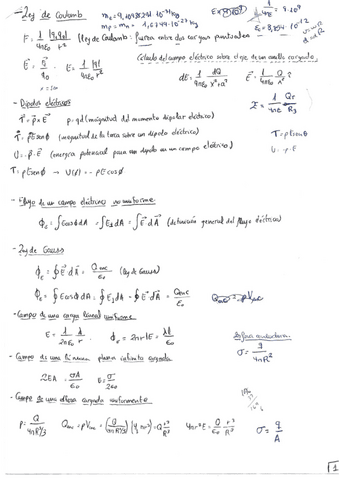 - Ley de Coulomb
F = 1/4πε₀ |q₁q₂|/r² (Ley de Coulomb: fuerza entre dos cargas puntuales)
E = 1/4πε₀ |q|/r²
Cálculo del campo eléctrico sobre el eje de un anillo cargado
dE = 1/4πε₀ dQ/x²+a²
- Dipolos eléctricos
τ = p × E p = qd (magnitud del momento dipolar eléctrico)
τ = pE senφ (magnitud de la torca sobre un dipolo eléctrico)
τ = pE senφ
U = -p·E (energía potencial para un dipolo en un campo eléctrico)
U = -p·E
τ = pE senφ → U(φ) = -pE cosφ
- Flujo de un campo eléctrico no uniforme
Φ_E = ∫E cosφ dA = ∫E⊥ dA = ∫E dA (definición general del flujo eléctrico)
- Ley de Gauss
Φ_E = ∮E dA = Q_enc/ε₀ (ley de Gauss)
Φ_E = ∮E cosφ dA = ∮E⊥ dA = ∮E dA = Q_enc/ε₀
- Campo de una carga lineal uniforme
E = 1/2πε₀ λ/r Φ_E = 2πrlE = λl/ε₀
Esfera conductora
σ = q/4πR²
- Campo de una lámina plana infinita cargada
2EA = σA/ε₀ E = σ/2ε₀
- Campo de una esfera cargada uniformemente
ρ = Q/4πR³/3 Q_enc = ρV_enc = (Q/4πR³/3)(4/3 πr³) = Q r³/R³ 4πr²E = Q/ε₀ r³/R³
σ = q/A
1